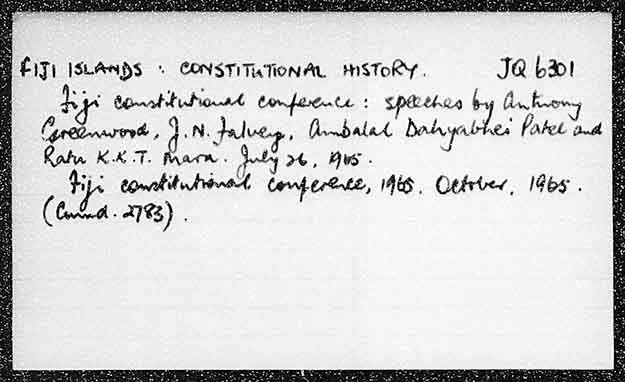 FIJI ISLANDS : CONSTITUTIONAL HISTORY. JQ 6301
Fiji constitutional conference : speeches by Anthony
Greenwood, J.N. Falvey, Ambalal Dahyabhai Patel and
Ratu K.K.T. Mara. July 26, 1965.
Fiji constitutional conference, 1965. October, 1965.
(Cmnd. 2783).